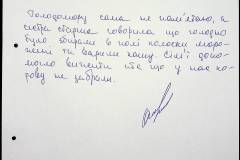 Голодомору сама не пам'ятаю, а
сестра старша говорила що голодно
було збирали в полі колоски моро-
жені та варили кашу. Сім'ї допо-
могло вижити те що у нас ко-
рову не забрали.